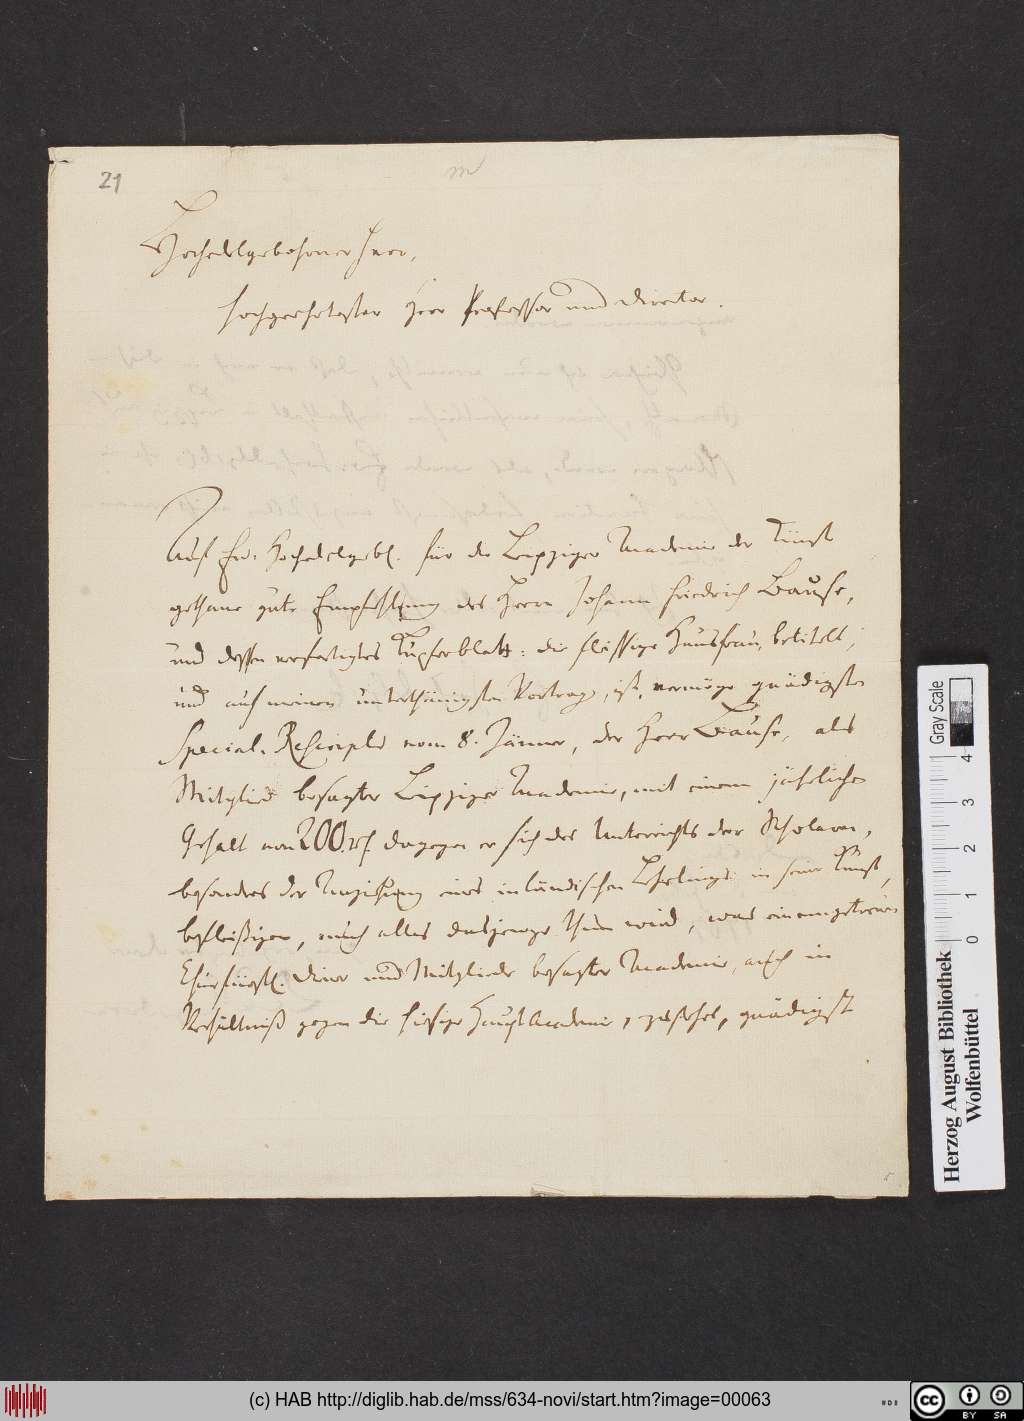 21
Hochedelgebohrner Herr,
hochgeehrtester Herr Professor und Director.
Auf Ew. Hochedelgebl. für die Leipziger Academie der Künste
gethane gute Empfehlung des Herrn Johann Friedrich Bause,
und dessen verfertigtes Kupferblatt: die fleissige Hausfrau, betitelt,
und auf meinen unterthänigsten Vortrag, ist, vermöge gnädigsten
Special-Rescripts vom 8. Jänner, der Herr Bause, als
Mitglied besagter Leipziger Academie, mit einem jährlichen
Gehalt von 200. rf. dagegen er sich des Unterrichts der Scholaren,
besonders der Anziehung eines inländischen Lehrlings in seiner Kunst,
befleißigen, auch alles dasjenige thun wird, was einem getreuen
Churfürstl. Diener und Mitgliede besagter Academie, auch in
Verhältniß gegen die hiesige Haupt Academie, zustehet, gnädigst
Gray Scale
4
3
2
1
0
Herzog August Bibliothek
Wolfenbüttel
(c) HAB http://diglib.hab.de/mss/634-novi/start.htm?image=00063
cc
BY SA